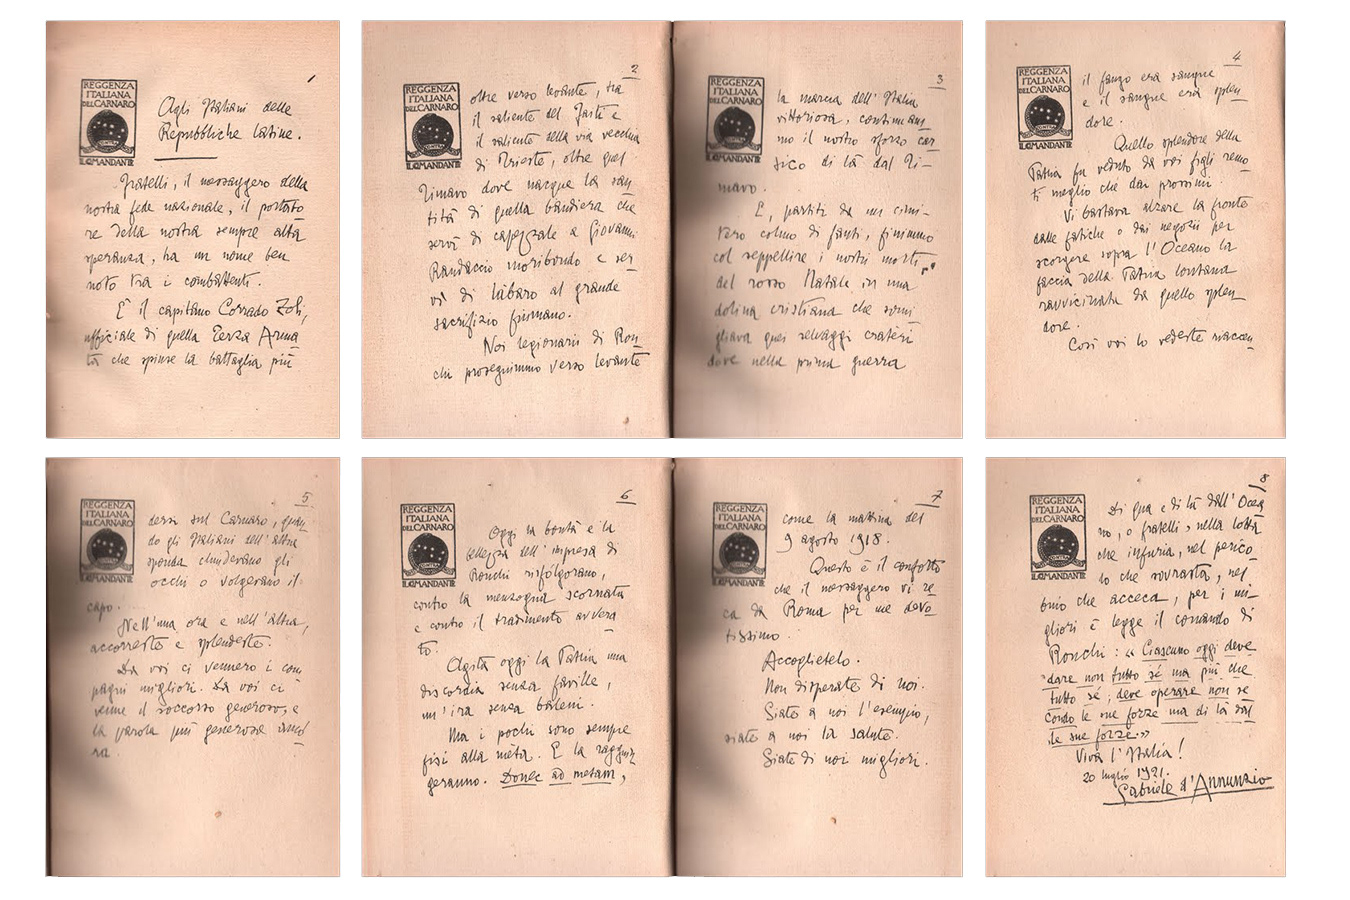 1
REGGENZA
ITALIANA
DEL CARNARO
IL COMANDANTE
Agli Italiani delle
Repubbliche latine.
Fratelli, il messaggero della
nostra fede nazionale, il portato
re della nostra sempre alta
speranza, ha un nome ben
noto tra i combattenti.
È il capitano Corrado Zoli,
ufficiale di quella Terza Arma
ta che spinse la battaglia più
2
REGGENZA
ITALIANA
DEL CARNARO
IL COMANDANTE
oltre verso levante, tra
il saliente del Faiti e
il saliente della via vecchia
di Trieste, oltre quel
Timavo dove nacque la san
tità di quella bandiera che
servì di capezzale a Giovanni
Randaccio moribondo e ser
vì di labaro al grande
sacrifizio fiumano.
Noi legionarii di Ron
chi proseguimmo verso levante
3
REGGENZA
ITALIANA
DEL CARNARO
IL COMANDANTE
la marcia dell'Italia
vittoriosa, continuam
mo il nostro sforzo car
sico di là dal Ti-
mavo.
E, partiti da un cimi-
tero colmo di fanti, finimmo
col seppellire i nostri morti
del rosso Natale in una
dolina cristiana che somi
gliava quei selvaggi crateri
dove nella prima guerra
4
REGGENZA
ITALIANA
DEL CARNARO
IL COMANDANTE
il fango era sangue
e il sangue era splen
dore.
Quello splendore della
Patria fu veduto da voi figli remo
ti meglio che dai prossimi.
Vi bastava alzare la fronte
dalle fatiche o dai negozii per
scorgere sopra l'Oceano la
faccia della Patria lontana
ravvicinata da quello splen
dore.
Così voi lo vedeste riaccen
5
REGGENZA
ITALIANA
DEL CARNARO
IL COMANDANTE
dersi sul Carnaro, quan
do gli Italiani dell'altra
sponda chiudevano gli
occhi o volgevano il
capo.
Nell'una ora e nell'altra,
accorreste e splendeste.
Da voi ci vennero i com
pagni migliori. Da voi ci
venne il soccorso generoso, e
la parola più generosa anco
ra.
6
REGGENZA
ITALIANA
DEL CARNARO
IL COMANDANTE
Oggi la bontà e la
bellezza dell'impresa di
Ronchi risfolgorano,
contro la menzogna scornata
e contro il tradimento avvera
to.
Agita oggi la Patria una
discordia senza faville,
un'ira senza baleni.
Ma i pochi sono sempre
fisi alla mèta. E la raggiun
geranno. Donec ad metam,
7
REGGENZA
ITALIANA
DEL CARNARO
IL COMANDANTE
come la mattina del
9 agosto 1918.
Questo è il conforto
che il messaggero vi re
ca da Roma per me devo
tissimo.
Accoglietelo.
Non disperate di noi.
Siate a noi l'esempio,
siate a noi la salute.
Siate di noi migliori.
8
REGGENZA
ITALIANA
DEL CARNARO
IL COMANDANTE
Di qua e di là dall'Ocea
no, o fratelli, nella lotta
che infuria, nel perico
lo che sovrasta, nel
buio che acceca, per i mi-
gliori è legge il comando di
Ronchi: "Ciascuno oggi deve
dare non tutto sé ma più che
tutto sé; deve operare non se
condo le sue forze ma di là dal
le sue forze."
Viva l'Italia!
20 luglio 1921.
Gabriele d'Annunzio